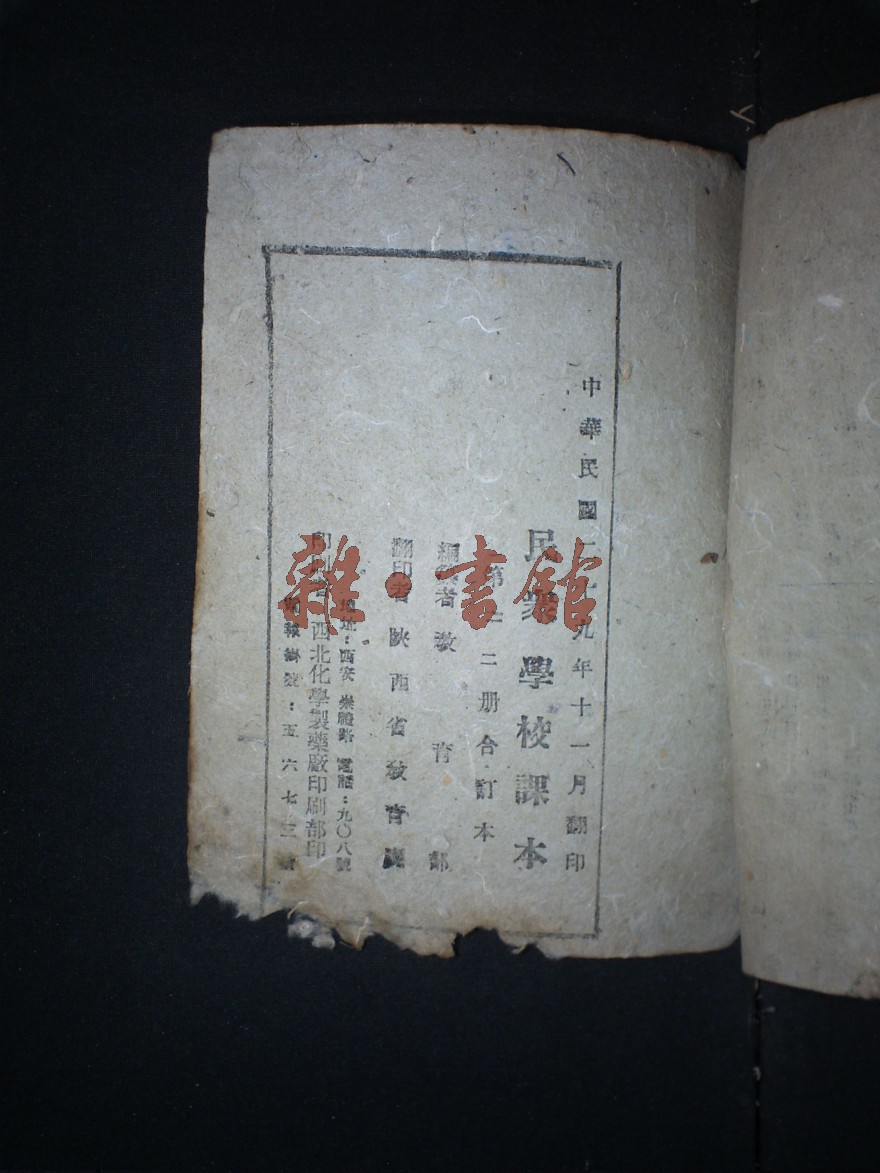 中華民國二十九年十一月翻印
民眾學校課本
第一二册合訂本
編輯者教育部
翻印者陝西省教育廳
地址：西安崇禮路 電話：九〇八號
印刷者西北化學製藥廠印刷部印
電報掛號：五六七二號
雜·書館